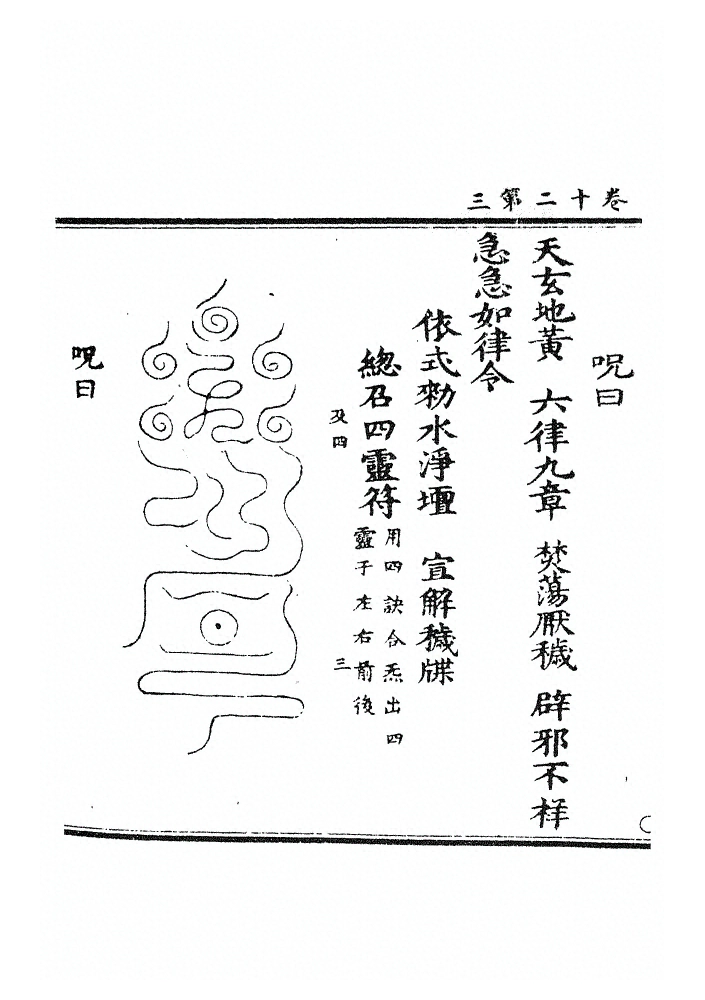 卷十二第三
呪曰
天玄地黃 六律九章 焚蕩厭穢 辟邪不祥
急急如律令
依式勑水淨壇 宣解穢牒
總召四靈符
用四訣合炁出四
靈于左右前後
及四
三
呪曰